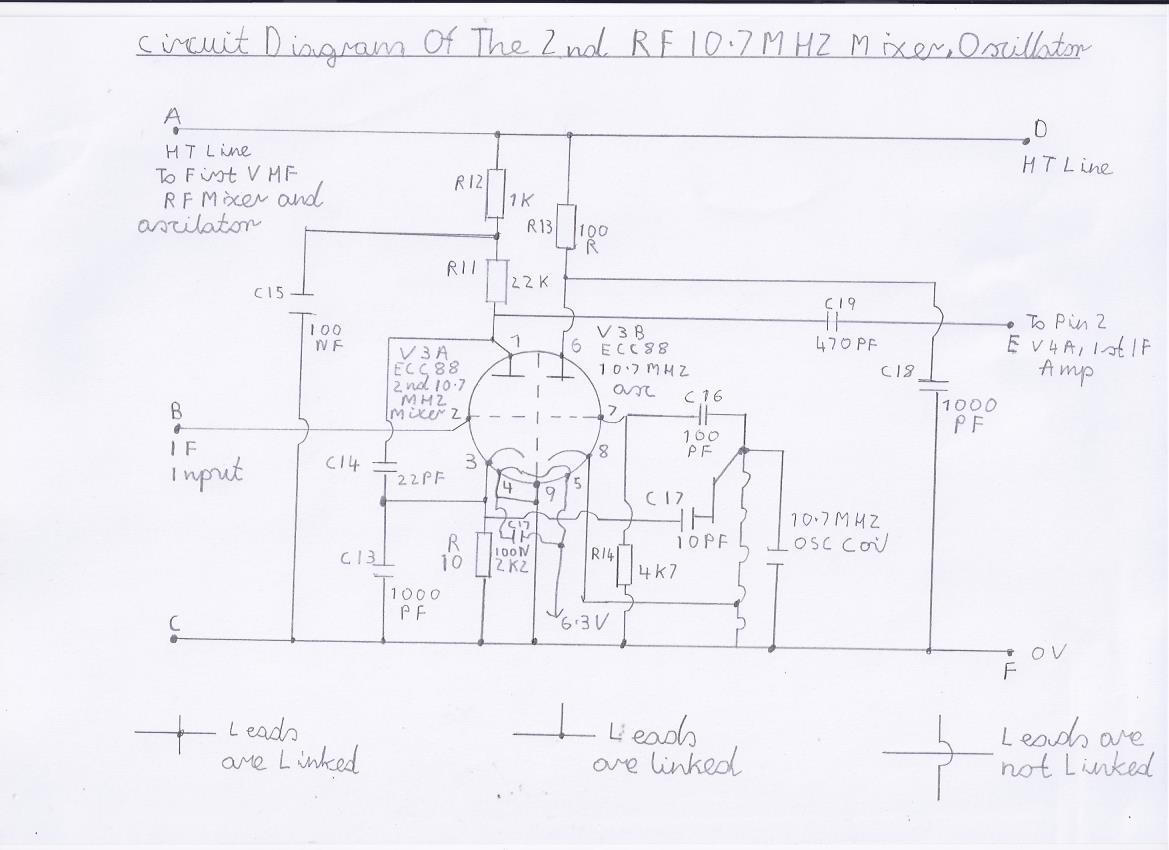 Circuit Diagram Of The 2nd RF 10.7MHZ Mixer, Oscillator
A
D
HT Line
To First VHF
RF Mixer and
oscilator
HT Line
R12
1K
R13
100
R
R11
22K
C15
100
NF
C19
470PF
To Pin 2
E V4A, 1st IF
Amp
1
6
V3B
ECC88
10.7MHZ
osc
V3A
ECC88
2nd 10.7
MHZ
Mixer 2
C18
1000
PF
B
IF
Input
7
C16
100
PF
8
3
4
9
5
C14
22PF
C17
10PF
10.7MHZ
OSC Coil
C17
100N
R
10
2K2
R14
4K7
C13
1000
PF
6.3V
C
0V
F
Leads
are Linked
Leads
are linked
Leads are
not Linked